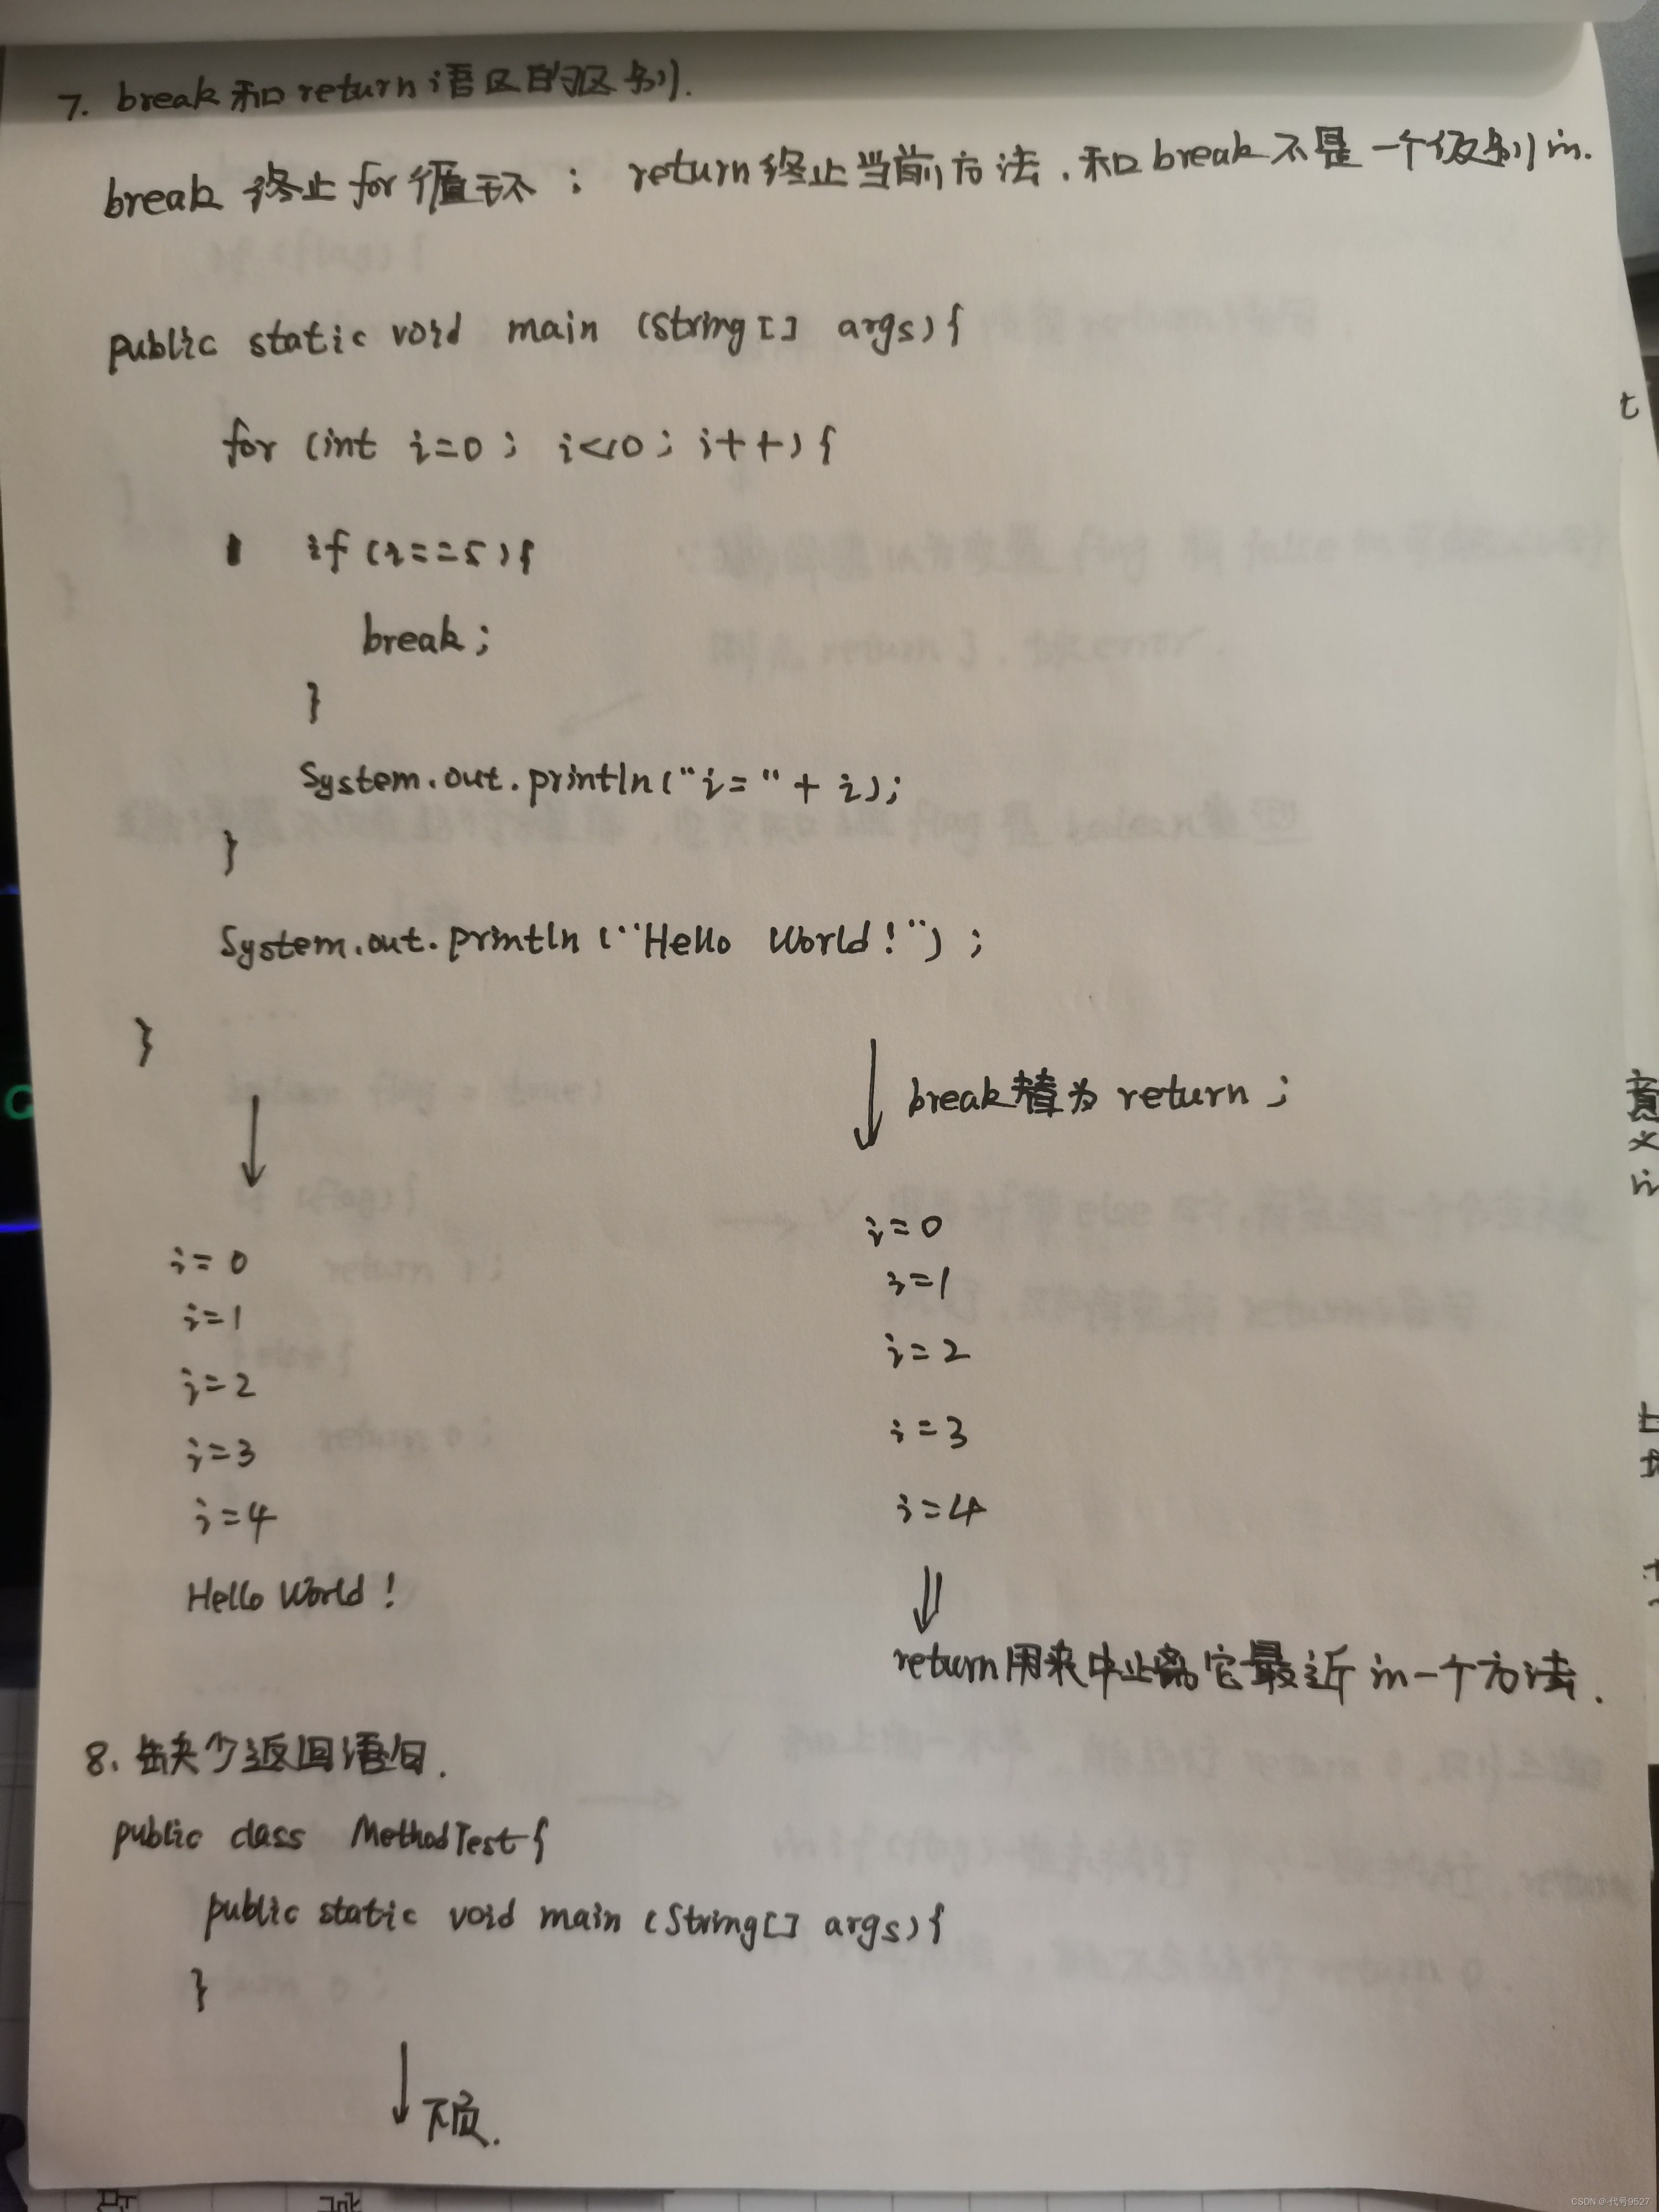 7. break和return语区的区别.
break 终止for循环; return终止当前方法.和break不是一个级别in.
public static void main (String[] args){
for (int i=0; i<10; i++){
if (i==5){
break;
}
System.out.println("i=" + i);
}
System.out.println("Hello World!");
}
break替为return;
i=0
i=1
i=2
i=3
i=4
Hello World!
i=0
i=1
i=2
i=3
i=4
return用来中止离它最近in一个方法.
8. 缺少返回语句.
public class MethodTest{
public static void main (String[] args){
}
下页.
CSDN @代号9527